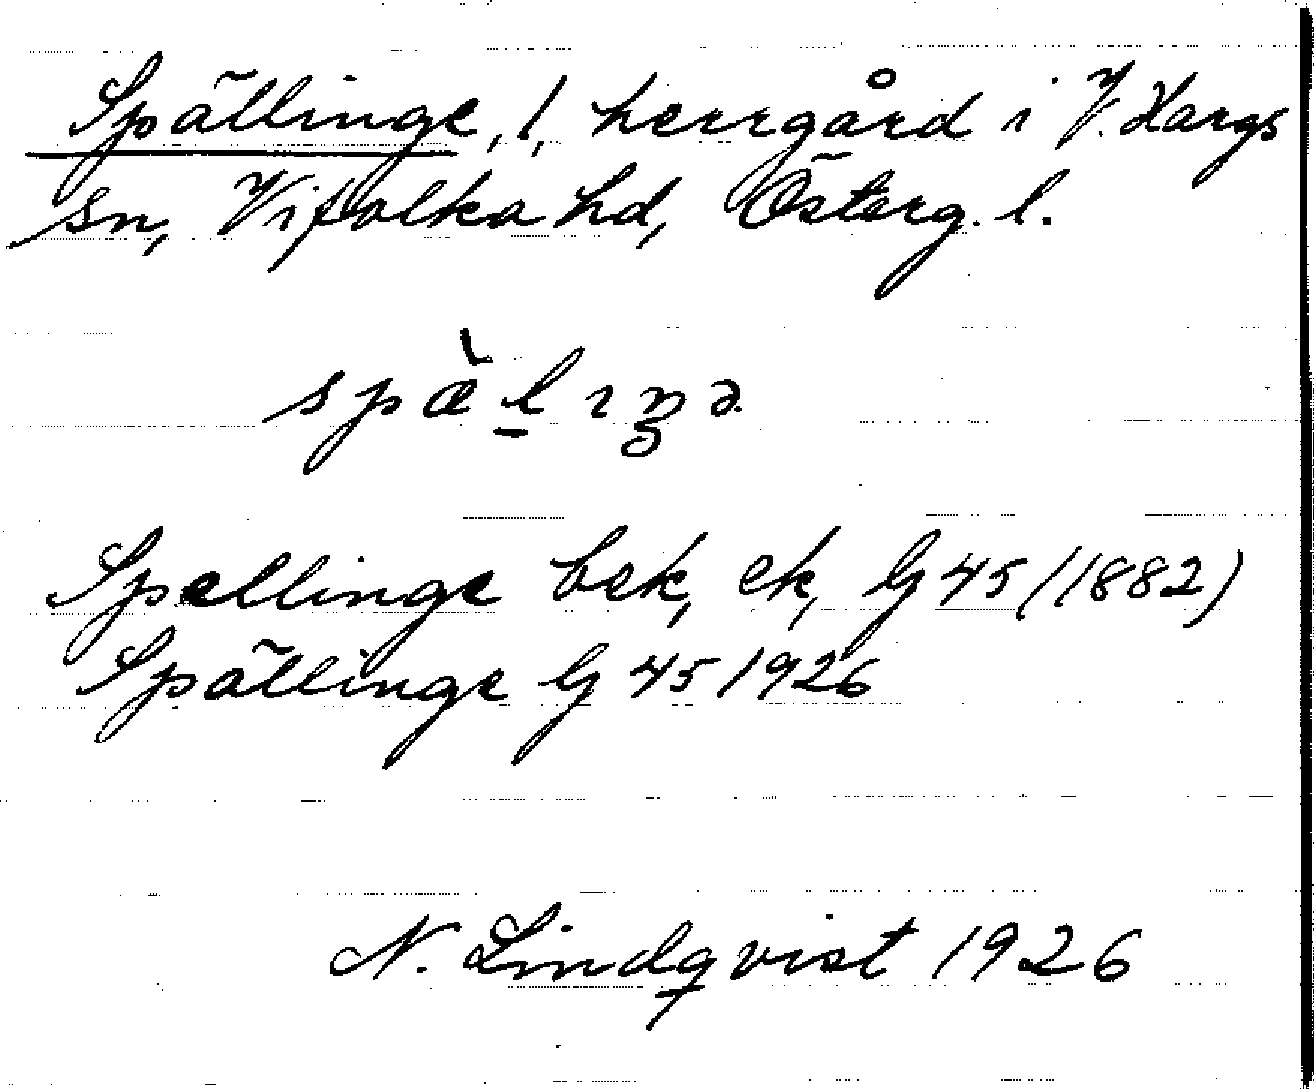 Spällinge, 1, herrgård i V. Hargs
sn, Vifolka hd, Österg. l.
spæ̀lıŋə
Spellinge bek, ek, G 45 (1882)
Spällinge G 45 1926
N. Lindqvist 1926